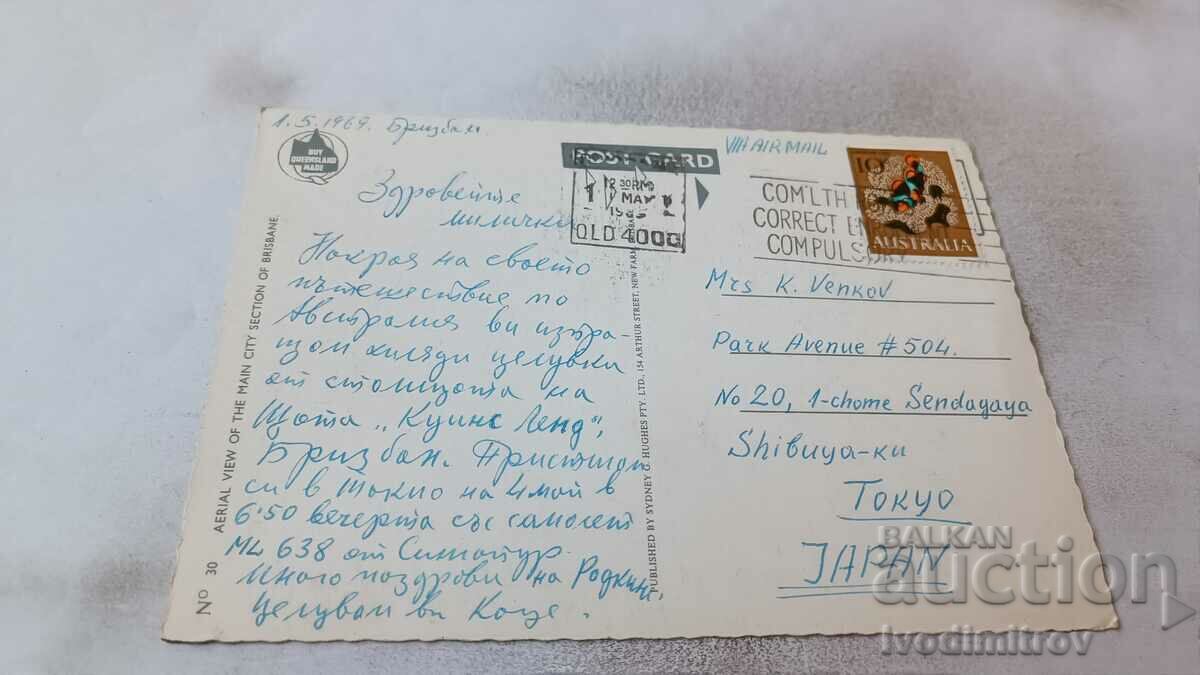 1.5.1969. Бризбан.
BUY
QUEENSLAND
MADE
POST CARD
VIA AIR MAIL
10
AUSTRALIA
12 30PM
1 MAY
QLD 4000
COM'LTH
CORRECT
COMPULSORY
Здравейте
милички
Накрая на своето
пътешествие по
Австралия ви изпра-
щам хиляди целувки
от столицата на
Щата „Куинс Ленд",
Бризбан. Пристигам
си в Токио на 4 май в
6'50 вечерта със самолет
ML 638 от Сингапур.
Много поздрави на
Целувам ви Коце.
Nº 30 AERIAL VIEW OF THE MAIN CITY SECTION OF BRISBANE
PUBLISHED BY SYDNEY G. HUGHES PTY. LTD., 154 ARTHUR STREET, NEW FARM, BRISBANE
Mrs K. Venkov
Park Avenue # 504.
No 20, 1-chome Sendagaya
Shibuya-ku
TOKYO
JAPAN
BALKAN
auction
Ivodimitrov